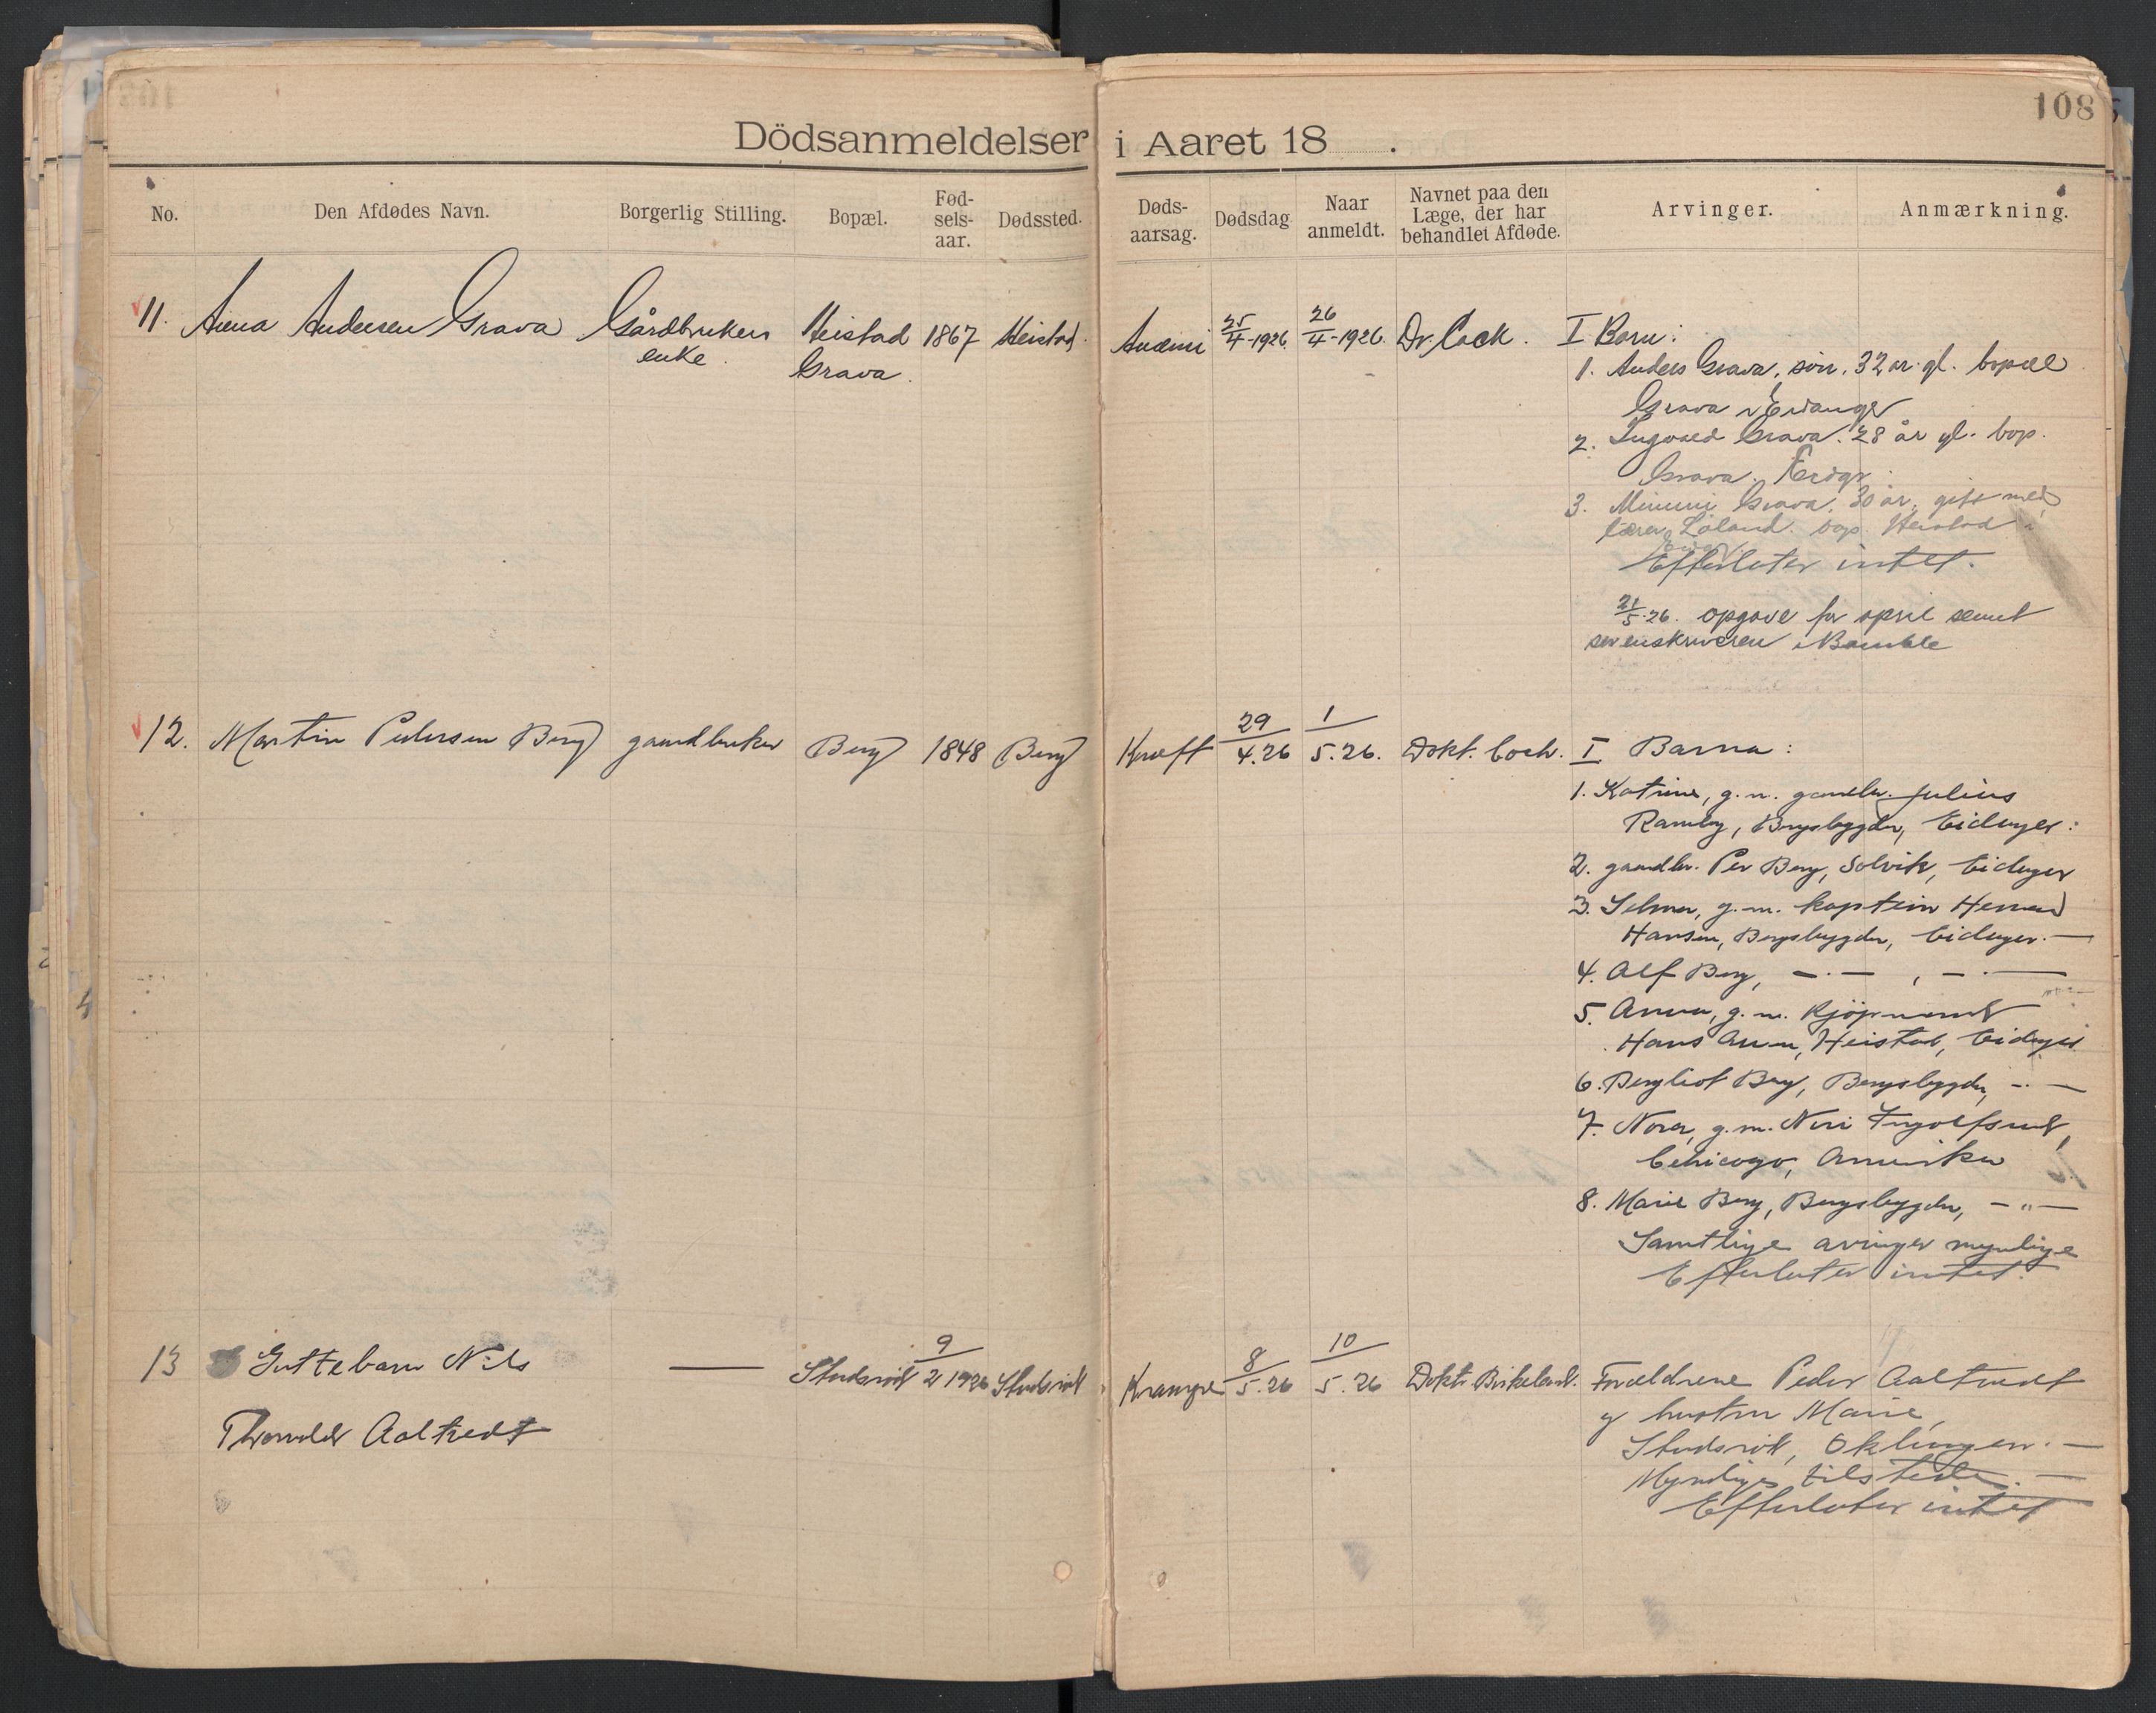 108
Dödsanmeldelser i Aaret 18 .
No. Den Afdødes Navn. Borgerlig Stilling. Bopæl. Fød-sels-aar. Dødssted. Døds-aarsag. Dødsdag Naar anmeldt. Navnet paa den Læge, der har behandlet Afdøde. Arvinger. Anmærkning.
11. Anna Andersen Grava Gårdbrukers enke. Heistad Grava. 1867 Heistad. Anæmi 25/4-1926. 26/4-1926. Dr. Cock. I Barn:
1. Anders Grava, sön, 32 år gl. bopæl
Grava i Eidanger
2. Ingvald Grava. 28 år gl. bop.
Grava. Eidgr.
3. Mimmi Grava, 30 år, gift med
lærer Löland. bop. Heistad i
Eidgr.
Efterlater intet.
21/5-26. opgave for april sendt
sorenskriveren i Bamble
12. Martin Pedersen Berg gaardbruker Berg 1848 Berg Kræft 29/4.26 1/5.26. Dokt. Coch. I Barna:
1. Katrine, g.m. gaardbr. Julius
Ramberg, Bergsbygden, Eidanger:
2. gaardbr. Per Berg, Solvik, Eidanger
3. Selma, g.m. kaptein Herman
Hansen, Bergsbygden, Eidanger. —
4. Alf Berg, — . — , — . —
5. Anna, g.m. Kjöpmand
Hans Aasen, Heistad, Eidanger
6. Bergliot Berg, Bergsbygden, — . —
7. Nora, g.m. Ingolfsrud,
Chicago, Amerika
8. Marie Berg, Bergsbygden, — " —
Samtlige arvinger myndige
Efterlater intet.
13 Guttebarn Nils — Studsröd 9/2 1926 Studsröd Krampe 8/5.26 10/5.26 Dokt. Birkeland. Forældrene Peder Aaltvedt
Thorvald Aaltvedt
og hustru Marie,
Studsröd, Oklungen. —
Myndige, tilstede. —
Efterlater intet